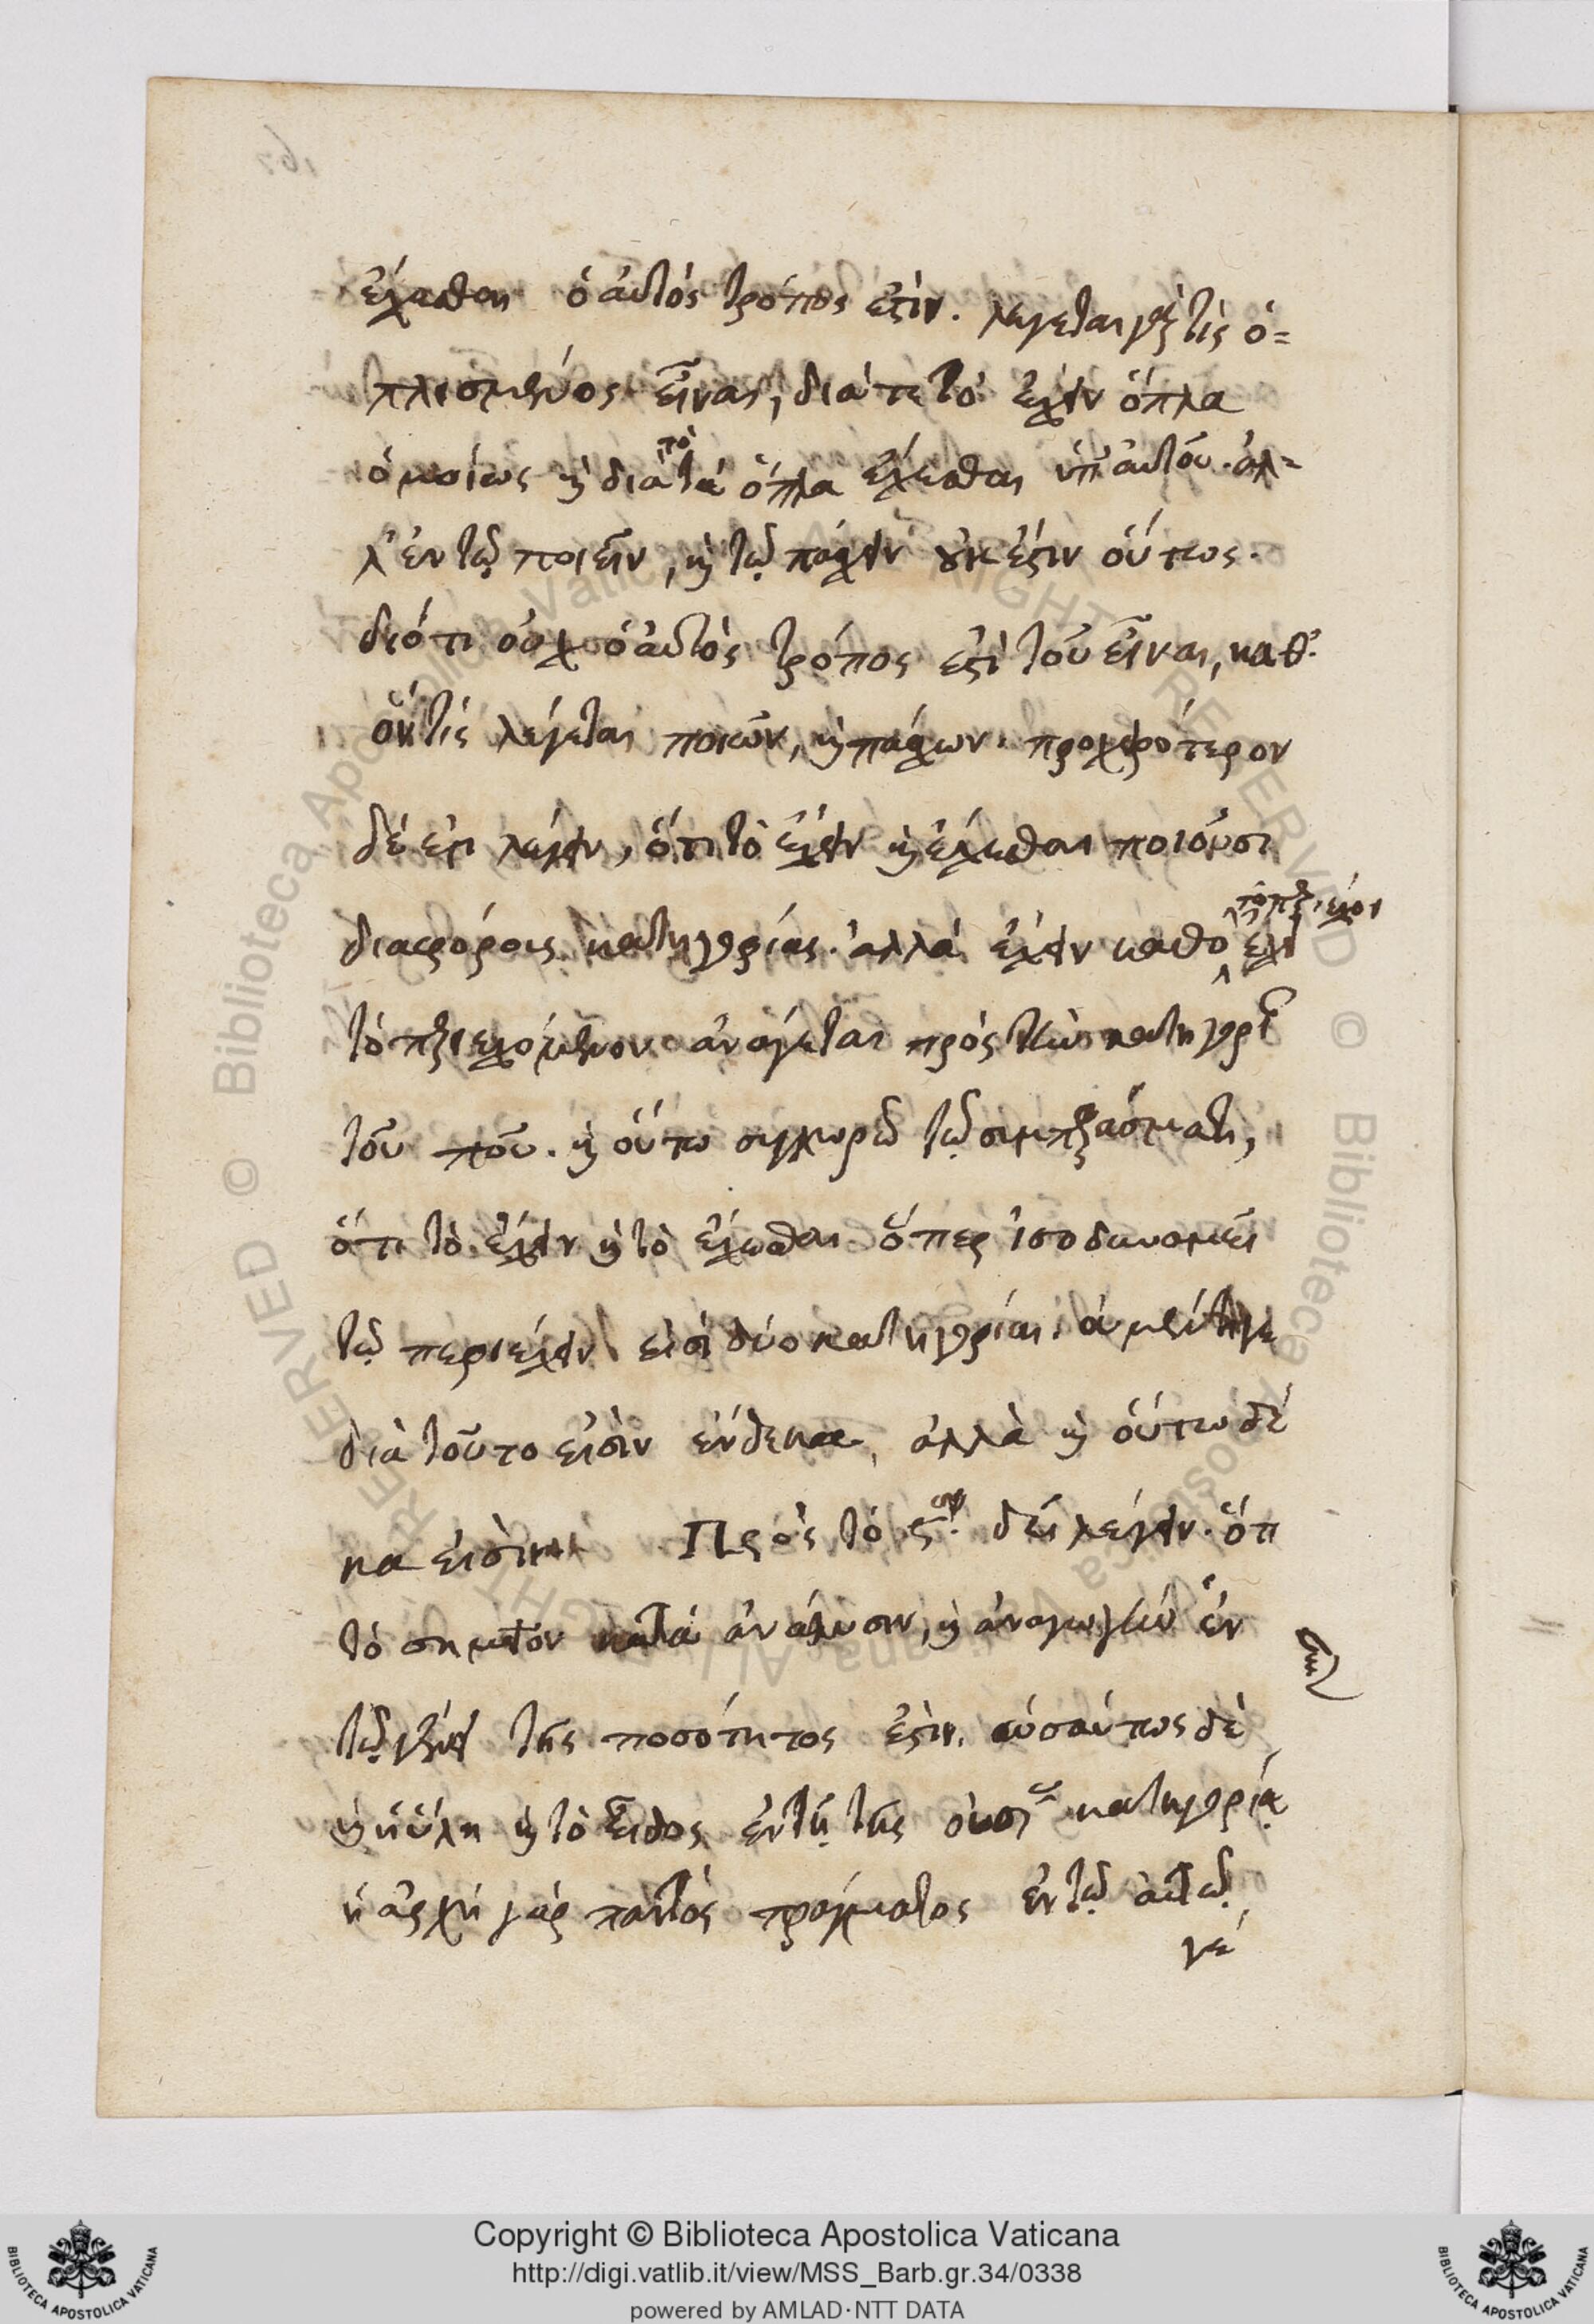 ἔχεσθαι ὁ αὐτὸς τρόπος ἐστίν. λέγεται γάρ τις ὁ=
πλισμένος εἶναι, διά τε τὸ ἔχειν ὅπλα
ὁμοίως καὶ διὰ τὸ τὰ ὅπλα ἔχεσθαι ὑπ' αὐτοῦ. ἀλ=
λ' ἐν τῷ ποιεῖν, καὶ τῷ πάσχειν οὐκ ἔστιν οὕτως.
διότι οὐχ ὁ αὐτὸς τρόπος ἐστὶ τοῦ εἶναι, καθ'
ὅν τις λέγεται ποιῶν, καὶ πάσχων. προχειρότερον
δέ ἐστι λέγειν, ὅτι τὸ ἔχειν καὶ ἔχεσθαι ποιοῦσι
διαφόρους κατηγορίας. ἀλλὰ ἔχειν καθὸ ἔχει
τὸ περιέχον
τὸ περιεχόμενον ἀνάγεται πρὸς τὴν κατηγορίαν
τοῦ ποῦ. καὶ οὕτω συγχωρῶ τῷ συμπεράσματι,
ὅτι τὸ ἔχειν καὶ τὸ ἔχεσθαι ὅπερ ἰσοδυναμεῖ
τῷ περιέχειν εἰσὶ δύο κατηγορίαι. ἀ μέντοιγε
διὰ τοῦτο εἰσὶν ἕνδεκα, ἀλλὰ καὶ οὕτω δέ
κα εἰσίν. Πρὸς τὸ ϛον. δεῖ λέγειν. ὅτι
τὸ σημεῖον κατὰ ἀνάλυσιν, καὶ ἀναγωγὴν ἐν
τῷ γένει τῆς ποσότητος ἔστιν. ὡσαύτως δὲ
καὶ ἡ ὕλη καὶ τὸ εἶδος ἐν τῇ τῆς οὐσίας κατηγορίᾳ
ἡ ἀρχὴ γὰρ παντὸς πράγματος ἐν τῷ αὐτῷ
γέ
Copyright © Biblioteca Apostolica Vaticana
http://digi.vatlib.it/view/MSS_Barb.gr.34/0338
powered by AMLAD·NTT DATA